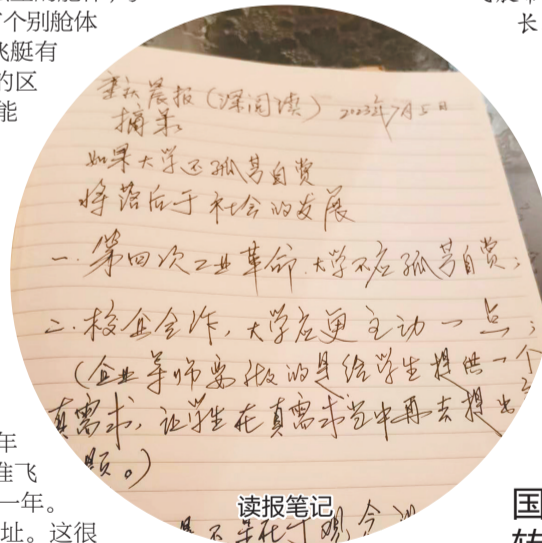 个别舱体
飞艇有
的区
能
长
重庆晨报(深阅读) 2023年7月5日
摘录
如果大学还孤芳自赏
将落后于社会的发展
一.第四次工业革命,大学不应孤芳自赏;
二.校企合作,大学应更主动一点;
(企业导师要做的是给学生提供一个
真需求,让学生在真需求当中再去提出
题。)
年
准飞
一年。
址。这很
读报笔记
国